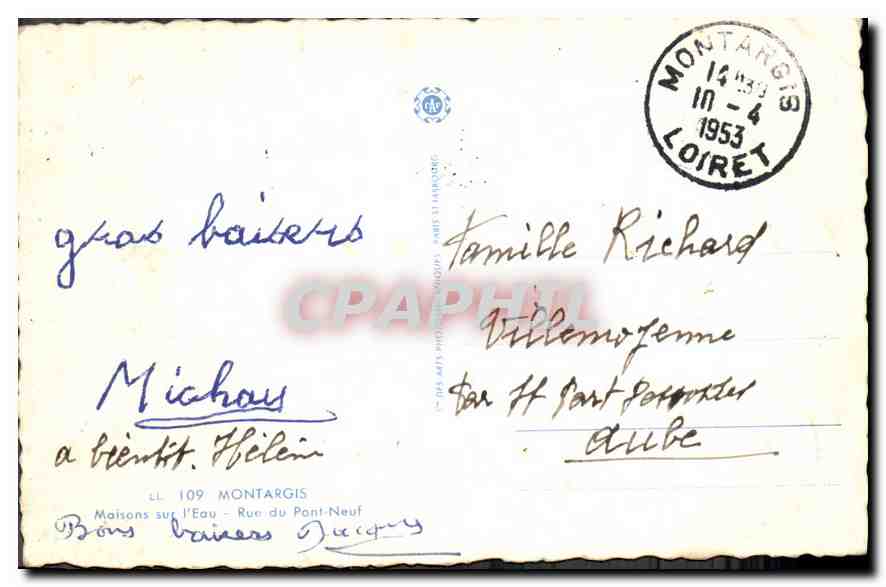 MONTARGIS
14H30
10 - 4
1953
LOIRET
CAP
gros baisers
Michou
a bientôt. Hélène
LL 109 MONTARGIS
Maisons sur l'Eau - Rue du Pont-Neuf
Bons baisers Jacques
Cie DES ARTS PHOTOMÉCANIQUES PARIS STRASBOURG
CPAPHIL
Famille Richard
Villemoyenne
Par St Part
Aube